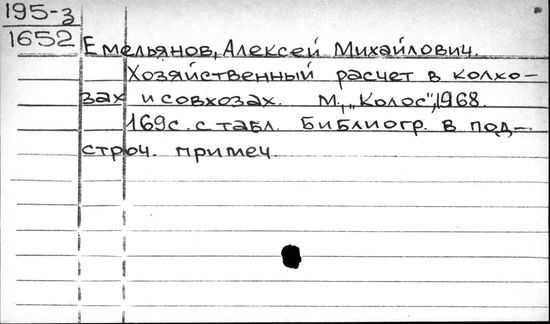 195-3
1652
Емельянов, Алексей Михайлович.
Хозяйственный расчет в колхо-
зах и совхозах. М., „Колос", 1968.
169с. с табл. Библиогр. в под-
строч. примеч.